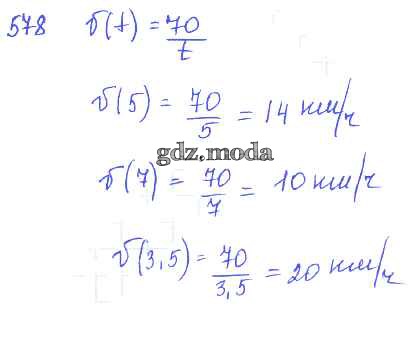 578 v(t) = 70/t
v(5) = 70/5 = 14 км/ч
gdz.moda
v(7) = 70/7 = 10 км/ч
v(3,5) = 70/3,5 = 20 км/ч